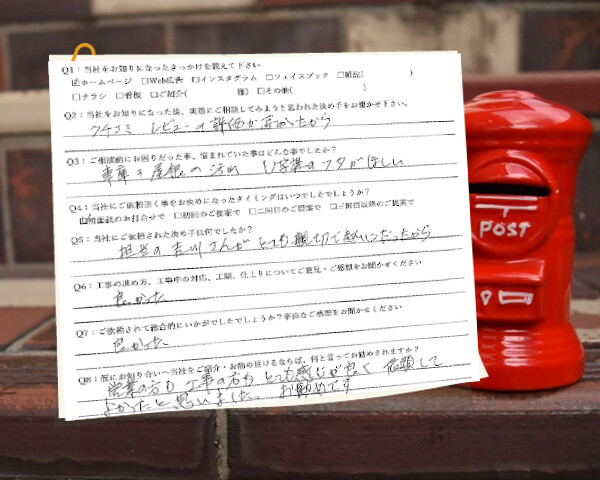 Q1：当社をお知りになったきっかけを教えて下さい
☑ホームページ □Web広告 □インスタグラム □フェイスブック □雑誌( )
□チラシ □看板 □ご紹介( 様) □その他( )
Q2：当社をお知りになった後、実際にご相談してみようと思われた決め手をお聞かせ下さい。
クチコミ レビューの評価が高かったから
Q3：ご相談前にお困りだった事、悩まれていた事はどんな事でしたか？
車庫の屋根の汚れ U字溝のフタがほしい
Q4：当社にご依頼頂く事をお決めになったタイミングはいつでしたでしょうか？
☑初面談のお打合せで □初回のご提案で □二回目のご提案で □三回目以降のご提案で
Q5：当社にご依頼された決め手は何でしたか？
担当の 吉川さんが とても親切で だったから
Q6：工事の進め方、工事中の対応、工期、仕上りについてご意見・ご感想をお聞かせください
良かった
Q7：ご依頼されて総合的にいかがでしたでしょうか？率直なご感想をお聞かせください
良かった
Q8：仮にお知り合いへ当社をご紹介・お勧め頂けるならば、何と言ってお勧めされますか？
営業の方も 工事の方も とても感じが良く 依頼して
よかったと思いました。 お勧めです
POST